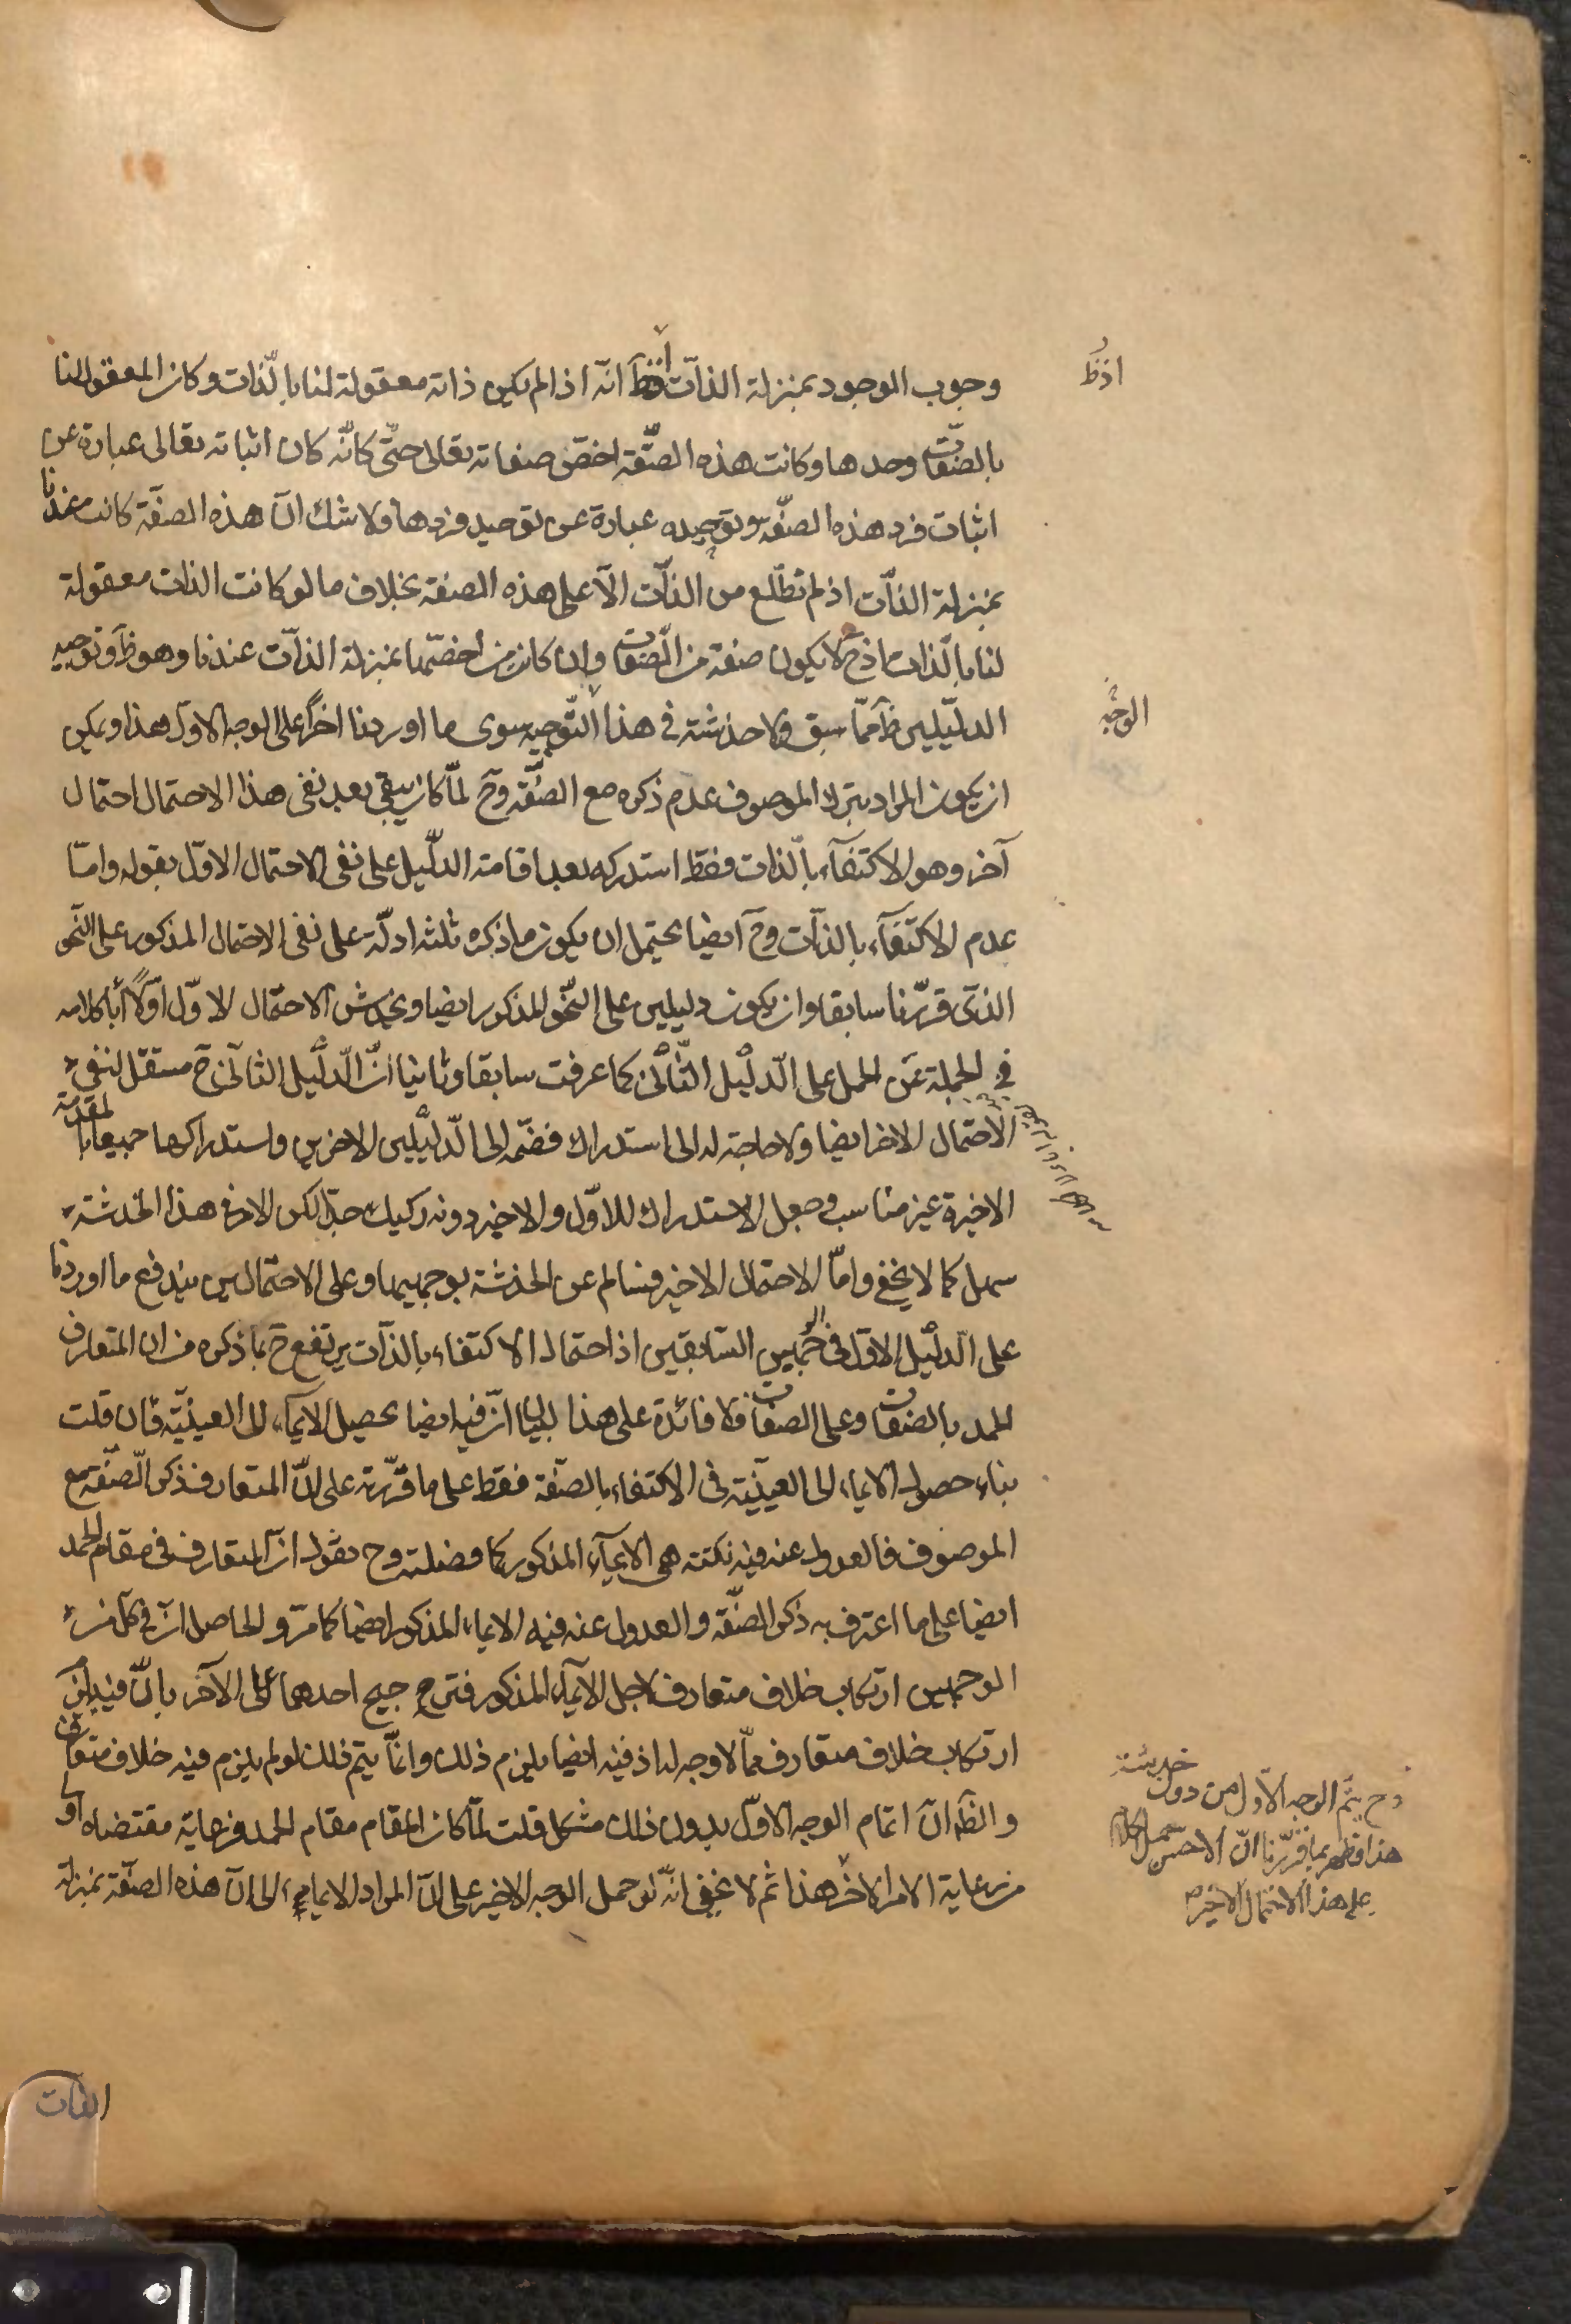 وجوب الوجود بمنزلة الذات اذ ظ انه اذا لم يكن ذاته معقولة لنا بالذات وكان المعقول لنا
بالصفات وحدها وكانت هذه الصفة اخص صفاته تعالى حتى كأنه كان اثباته تعالى عبارة عن
اثبات فرد هذه الصفة وتوحيده عبارة عن توحيد فردها ولا شك ان هذه الصفة كانت عندنا
بمنزلة الذات اذ لم نطلع من الذات الا على هذه الصفة بخلاف ما لو كانت الذات معقولة
لنا بالذات اذ ح لا يكون صفة من الصفات وان كان من اخصها بمنزلة الذات عندنا وهو ظ وتوجيه
الدليلين ظ مما سبق ولا خدشة في هذا التوجيه سوى ما اوردنا اخرا على الوجه الاول هذا ويمكن
ان يكون المراد بترك الموصوف عدم ذكره مع الصفة وح لما كان يبقى بعد نفى هذا الاحتمال احتمال
آخر وهو الاكتفاء بالذات فقط استدركه بعد اقامة الدليل على نفى الاحتمال الاول بقوله واما
عدم الاكتفاء بالذات وح ايضا يحتمل ان يكون ما ذكره ثلثة ادلة على نفى الاحتمال المذكور على النحو
الذى قررنا سابقا وان يكون دليلين على النحو المذكور ايضا ويخدش الاحتمال الاول اولا اباء كلامه
في الجملة عن الحمل على الدليل الثانى كما عرفت سابقا وثانيا ان الدليل الثانى ح مستقل لنفى
الاحتمال الاخر ايضا ولا حاجة له الى استدراك فضمه الى الدليلين الاخرين واستدراكها جميعا بالمقدمة
الاخيرة غير مناسب وجعل الاستدراك للاول والاخير دونه ركيك جدا لكن الامر في هذا الخدشة
سهل كما لا يخفى واما الاحتمال الاخير فسالم عن الخدشة بوجهيها وعلى الاحتمالين يندفع ما اوردنا
على الدليل الاول في الوجهين السابقين اذ احتمال الاكتفاء بالذات يرتفع ح بما ذكره من ان المتعارف
الحمد بالصفات وعلى الصفات فلا فائدة على هذا لبيان ان فيه ايضا يحصيل الايماء الى العينية فان قلت
بناء حصول الايماء الى العينية فى الاكتفاء بالصفة فقط على ما قررته على ان المتعارف ذكر الصفة مع
الموصوف فالعدول عنه فيه نكتة هى الايماء المذكور كما فصلته وح نقول ان المتعارف في مقام الحمد
ايضا على ما اعترف به ذكر الصفة والعدول عنه فيه الايماء المذكور ايضا كما مر والحاصل ان في كل من
الوجهين ارتكاب خلاف متعارف لاجل الايماء المذكور فترجيح احدهما على الآخر بان فيه
ارتكاب خلاف متعارف مما لا وجه له اذ فيه ايضا يلزم ذلك وانما يتم ذلك لو لم يلزم فيه خلاف متعارف
والظ ان اتمام الوجه الاول بدون ذلك مشكل قلت لما كان المقام مقام الحمد فرعاية مقتضاه اولى
من رعاية الامر الاخر هذا ثم لا يخفى انه لو حمل الوجه الاخير على ان المراد الايماء الى ان هذه الصفة بمنزلة
اذ ظ
الوجه
وح يتم الوجه الاول من دون خدشة
هذا فظهر بما قررنا ان الاحسن حمل الكلام
على هذا الاحتمال الاخير
الذات